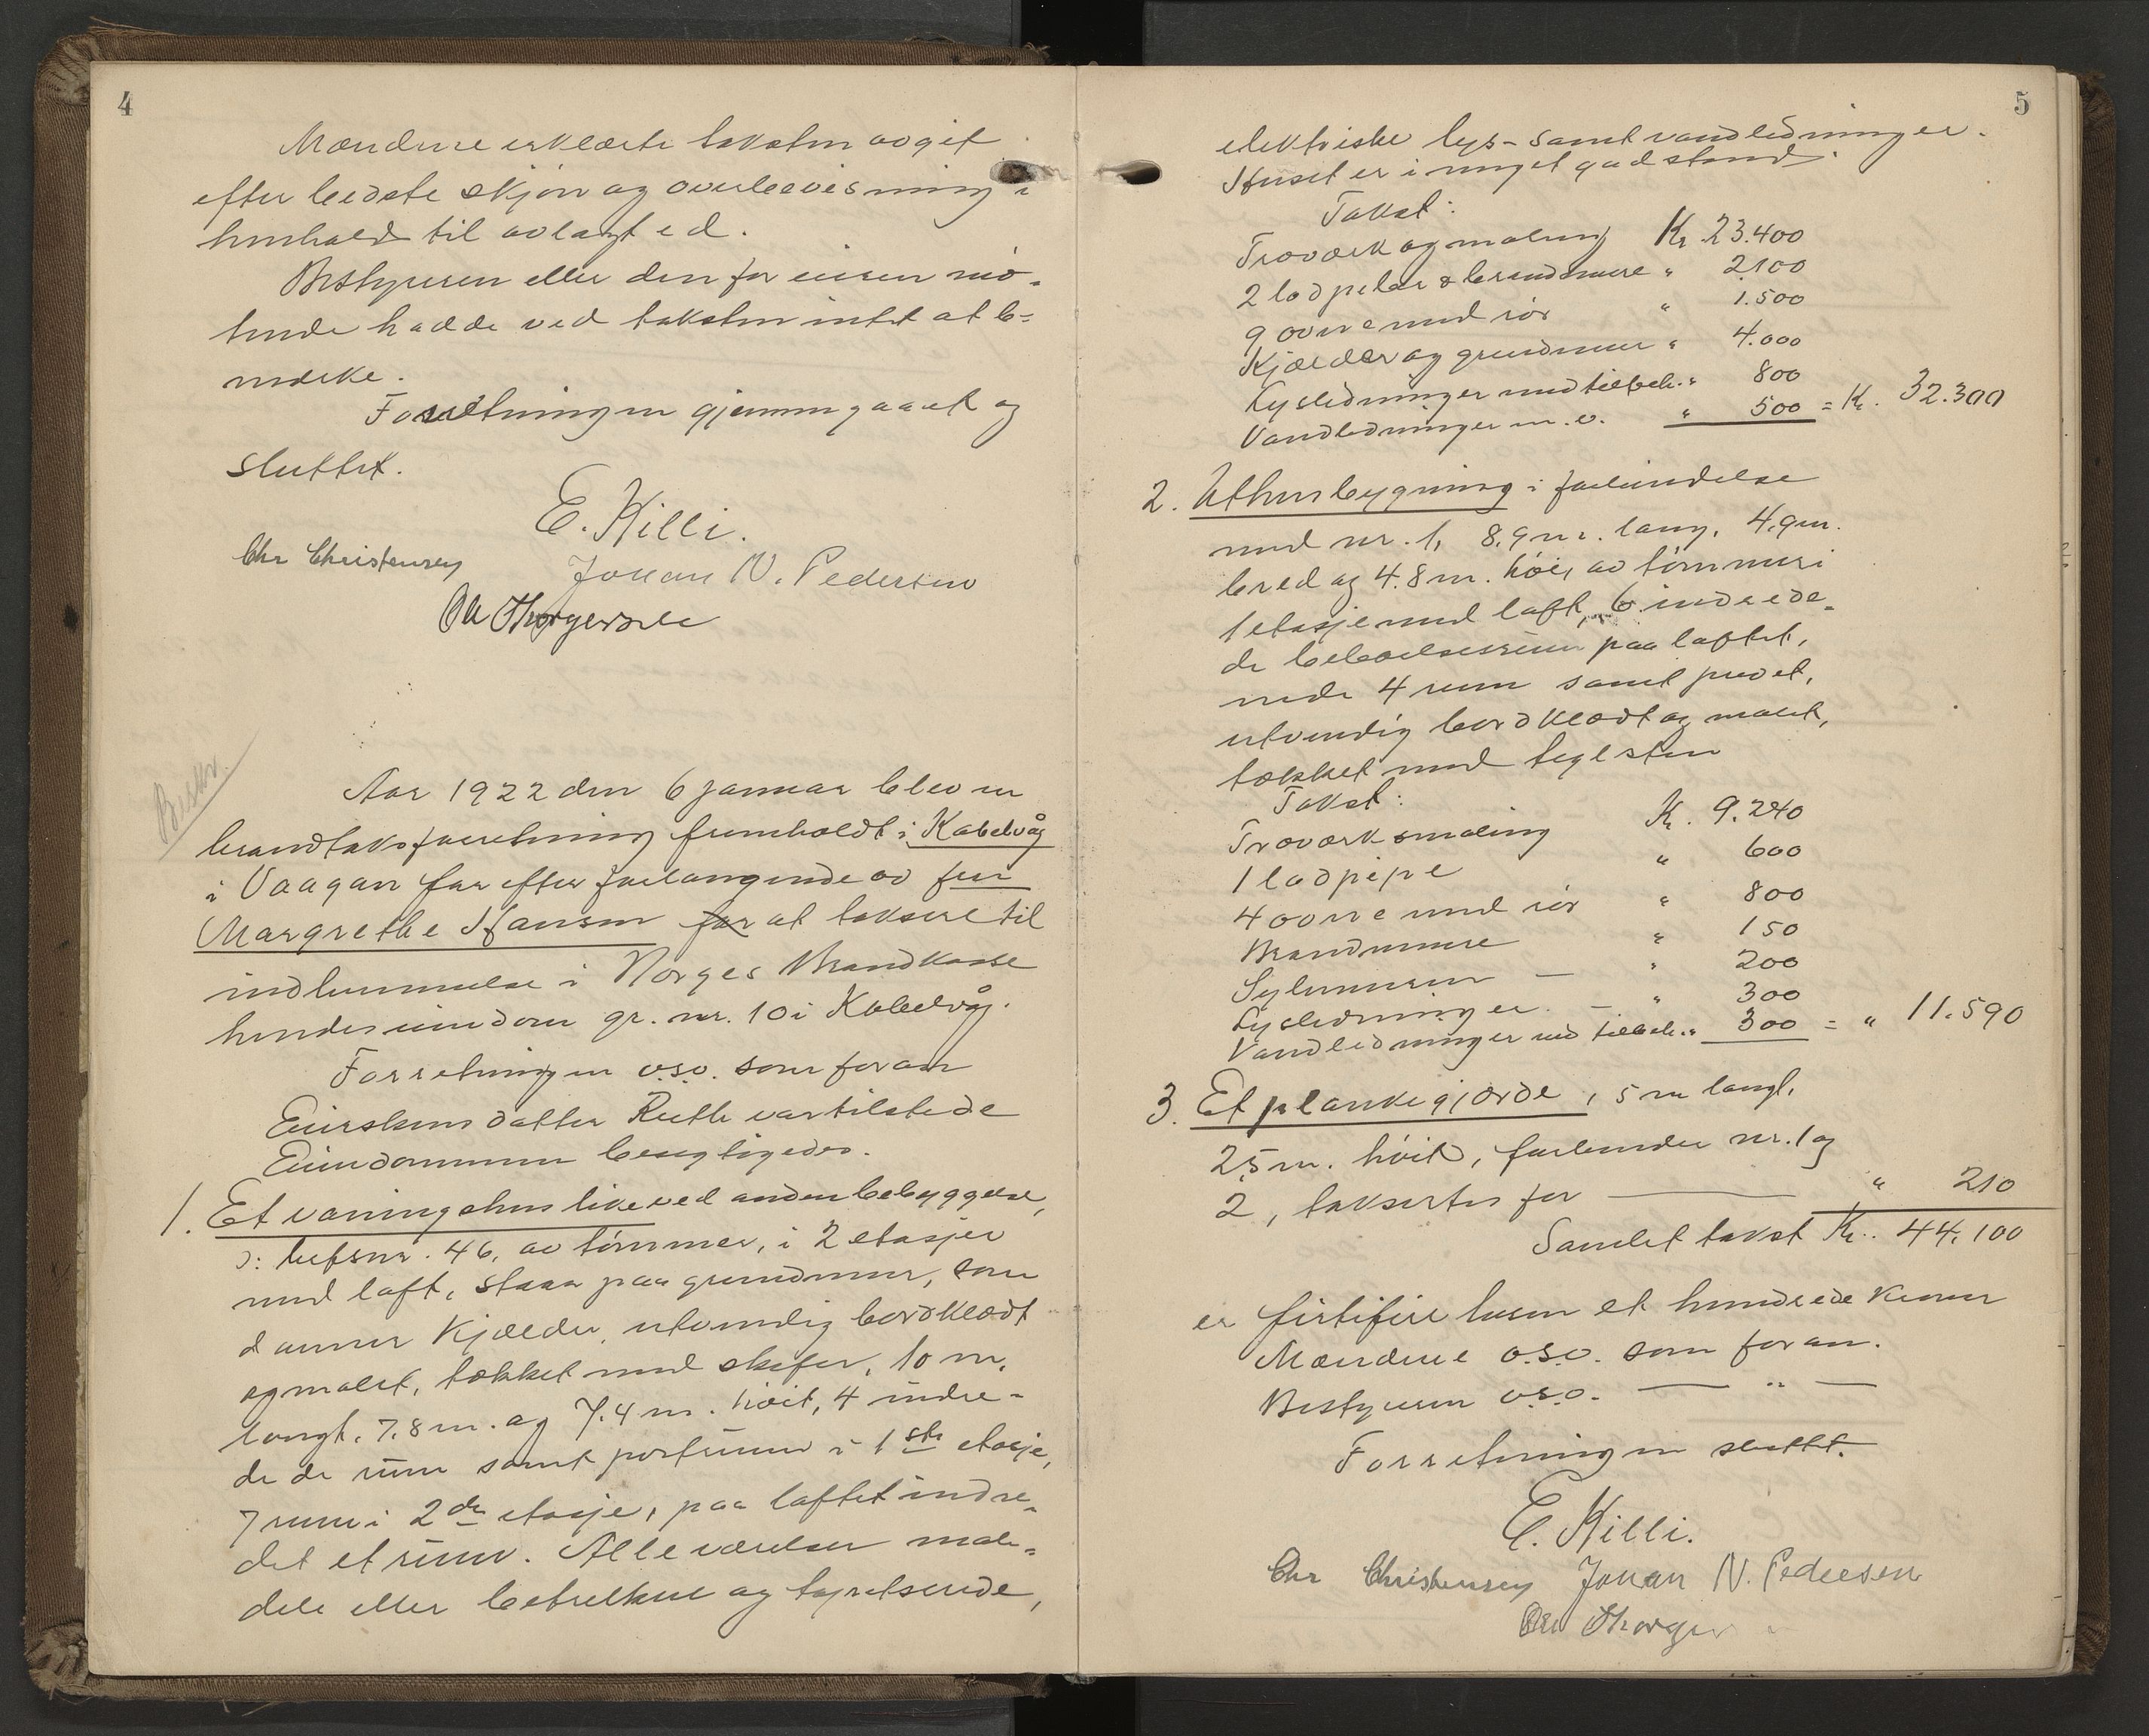 4
Mændene erklærte taksten avgit
efter bedste skjøn og overbevisning i
henhold til avlagt ed.
Bestyreren eller den for eieren mø-
tende hadde ved taksten intet at be-
merke.
Forretningen gjennemgaaet og
sluttet.
E. Killi.
Chr Christensen Johan N. Pedersen
Ole Thorgersen
Aar 1922 den 6 januar blev en
brandtaksforretning fremholdt i Kabelvåg
i Vaagan for efter forlangende av fru
Margrethe Hansen for at taksere til
indlemmelse i Norges Brandkasse
hendes eiendom gr. nr. 10 i Kabelvåg.
Forretningen o.s.v. som foran
Eierskens datter Ruth var tilstede
Eiendommen besigtigedes.
1. Et vaaningshus like ved anden bebyggelse,
ɔ: hefsnr. 46, av tømmer, i 2 etasjer
med loft, staar paa grundmur, som
danner kjælder, utvendig bordklædt
og malet, tækket med skifer, 10 m.
langt, 7,8 m. og 7.4 m. høit, 4 indre-
dede rum samt portrum i 1ste etasje,
7 rum i 2de etasje, paa loftet indre-
det et rum. Alle værelser male-
dele eller betrukne og tapetserede,
5
elektriske lys- samt vandledninger.
Huset er i meget god stand.
Takst:
Træværk og maling Kr. 23.400
2 lodpiber & brandmure " 2100
9 ovne med rør " 1.500
Kjælder og grundmur " 4.000
Lysledninger med tilbeh. " 800
Vandledninger m.v. " 500 = Kr. 32.300
2. Uthusbygning i forbindelse
med nr. 1, 8,9 m. lang, 4,9 m.
bred og 4.8 m. høi, av tømmer i
1 etasje med loft, 6 indrede-
de beboelsesrum paa loftet,
nede 4 rum samt privet,
utvendig bordklædt og malet,
tækket med teglsten
Takst:
Træværk & maling Kr. 9.240
1 lodpipe " 600
4 ovne med rør " 800
Brandmure " 150
Sylmuren — " 200
Lysledninger. — " 300
Vandledninger med tilbeh. " 300 = " 11.590
3. Et plankegjærde, 5 m langt,
2,5 m. høit, forbinder nr. 1 og
2, taksertes for — " 210
Samlet takst Kr. 44,100
er firtifire tusen et hundrede kroner
Mændene o.s.v. som foran.
Bestyreren o.s.v. — " —
Forretningen sluttet.
E. Killi.
Chr Christensen Johan N. Pedersen
Ole Thorger